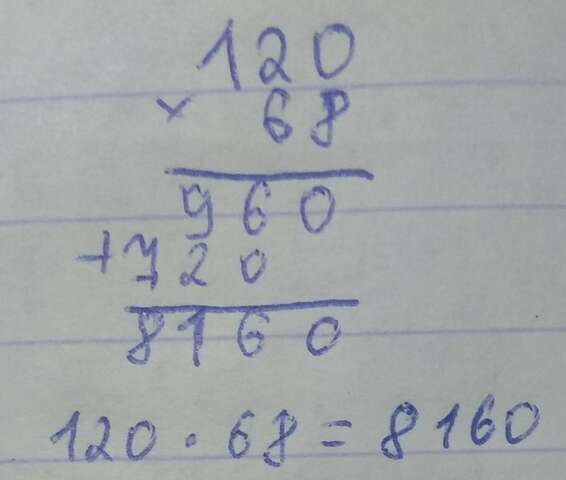 120
× 68
960
+720
8160
120 · 68 = 8160